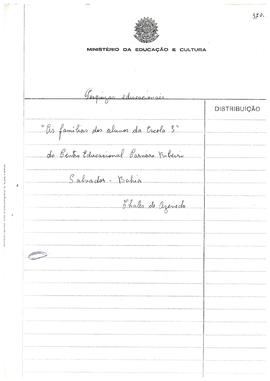 MINISTÉRIO DA EDUCAÇÃO E CULTURA
Pesquisas educacionais
DISTRIBUIÇÃO
"As famílias dos alunos da Escola 3"
do Centro Educacional Carneiro Ribeiro
Salvador - Bahia
Thales de Azevedo